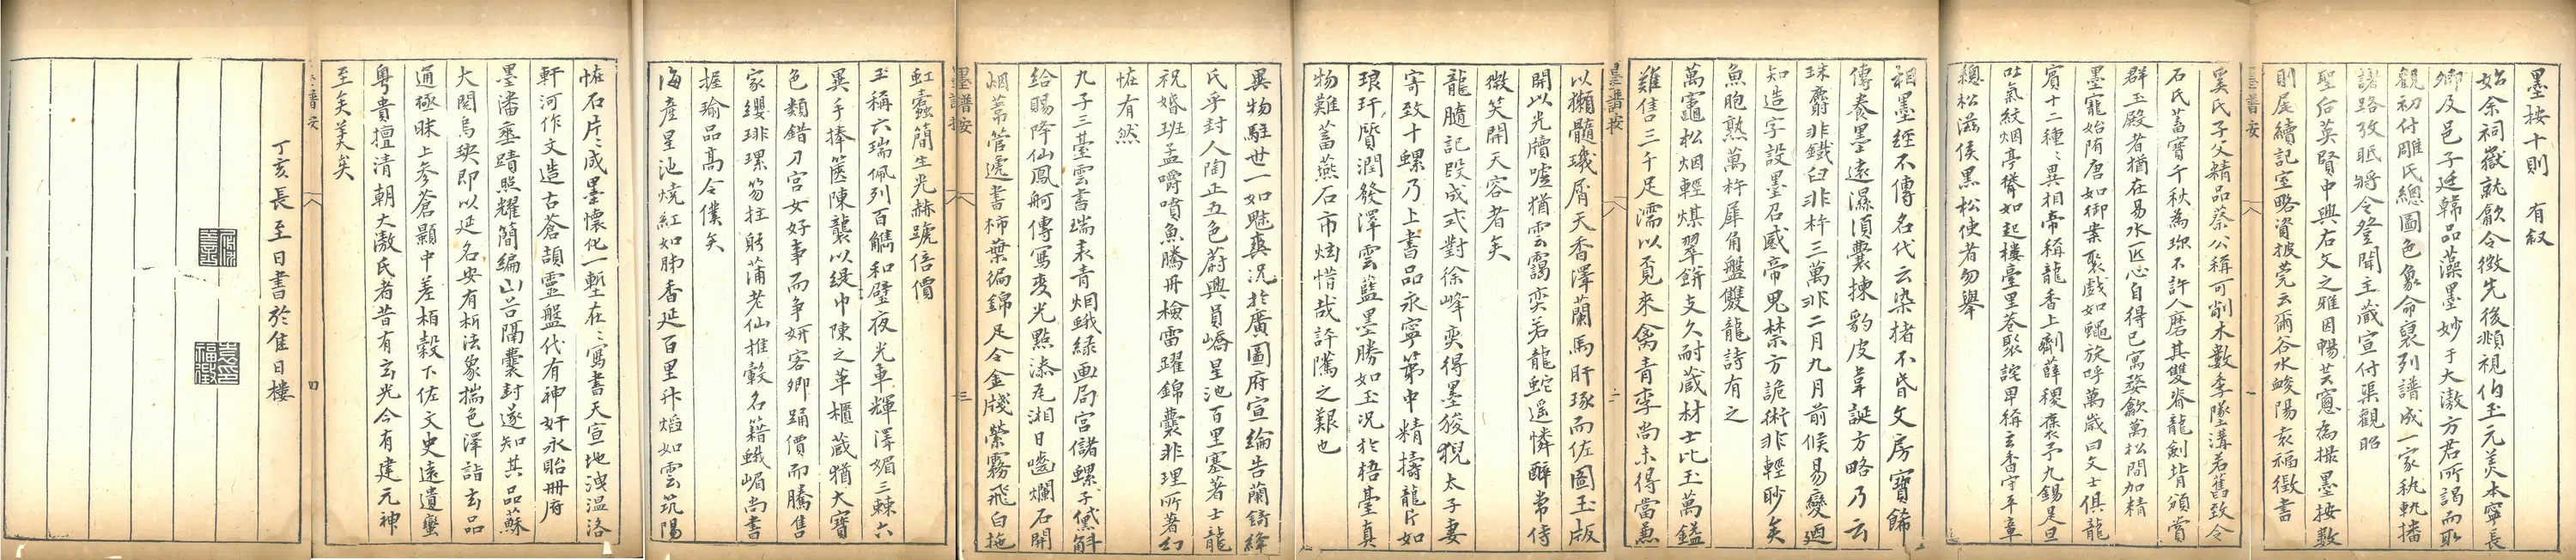 墨按十則 有叙
始余祠嶽就歙令徴先後頫視伯玉元美本寧長
卿及邑子廷韓品藻墨妙于大滶方君所謁而取
觀初付雕氏總圖色象命裒列譜成一家執軌播
諸路孜眂將令登聞主蔵宣付渠觀昭
聖治英賢中興右文之雅因暢芸窻為撮墨按數
則尾續記室略資披荒云爾谷水峻陽袁福徴書
奚氏子父精品蔡公稱可削木數李隊墜溝若舊致令
石氏蓄寶千秋為珎不許人磨其雙脊龍劍背頒賞
群玉殿者猶在易水匠心自得已寓婺歙萬松間加精
墨寵始隋唐如御案聚戲如蠅旋呼萬歳曰文士俱龍
賓十二種〻異相帝稱龍香上劑薛稷葆褁予九錫足旦
吐氣紋烟亭聳如起樓臺里巷聚詫畀稱玄香守平章
緫松滋侯黑松使者勿舉
相墨經不傳名代云染楮不昏文房寶飾
傳養墨遠濕湏囊揀豹皮韋誕方略乃云
珠麝非鐵臼非杵三萬非二月九月前候易變廼
知造字設墨召感帝鬼禁方詭術非輕眇矣
魚胞熟萬杵犀角盤雙龍詩有之
萬竈松烟輕煤翠餅支久耐蔵材士比玉萬鎰
難售三千足濡以覓來禽青李尚未得當羙
以獺髓璣屑天香澤蘭馬肝琢而佐圖玉版
開以光牘嘘猶雲靄奕若龍蛇遥憐醉常侍
微笑開天容者矣
龍髓記段成式對徐峰奕得墨狻猊太子妻
寄致十螺乃上書品永寧第中精擣龍片如
琅玕質潤發澤雲藍墨勝如玉況於梧臺真
物難蓄燕石市炫惜哉許隲之艱也
異物駐世一如魅爽況於廣圖府宣綸告蘭錡絳
氏乎封人陶正五色蔚興員嶠星池百里塞著士龍
祝婚班孟嚼噴魚騰丹檢雷躍錦囊非理所著幻
恠有然
九子三臺雲書瑞表青烟蛾緑画局宮儲螺子黛斛
給賜降仙鳳舸傳寫变光點漆尾湘日噬爛石開
烟蒂管遽書柿葉徧錦足令金牋縈霧飛白拖
虹蠹簡生光赫蹏倍價
玉稱六瑞佩列百觿和璧夜光車輝澤媚三棘六
異手捧篋陳襲以緹巾陳之革櫃蔵猶大寶
色類錯刀宮女好事而争妍客卿踊價而騰售
家纓琲瓅笏拄躬蒲老仙推轂名籍蛾嵋尚書
握瑜品髙今僕矣
海産星池燒紅如肺香延百里升熖如雲筑陽
恠石片〻成墨懐化一塹在〻寫書天宣地洩温洛
軒河作文造古蒼頡靈盤代有神奸永貽冊府
墨潘垂蹟照耀簡編山呂隔囊封遂知其品蘇
大関烏玦即以延名安有析法象揣色澤詣玄品
通極昧上参蒼顥中差栢穀下佐文史遠遺蠻
粤貴擅清朝大滶氏者昔有玄光今有建元神
至矣羙矣
丁亥長至日書於隹日樓
墨譜按
一
墨譜按
二
墨譜按
三
墨譜按
四
袁印
福徴